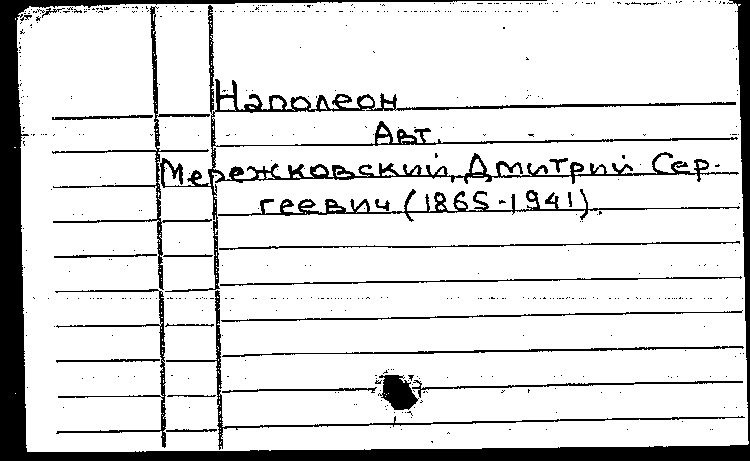 Наполеон
Авт.
Мережковский, Дмитрий Сер-
геевич (1865-1941).